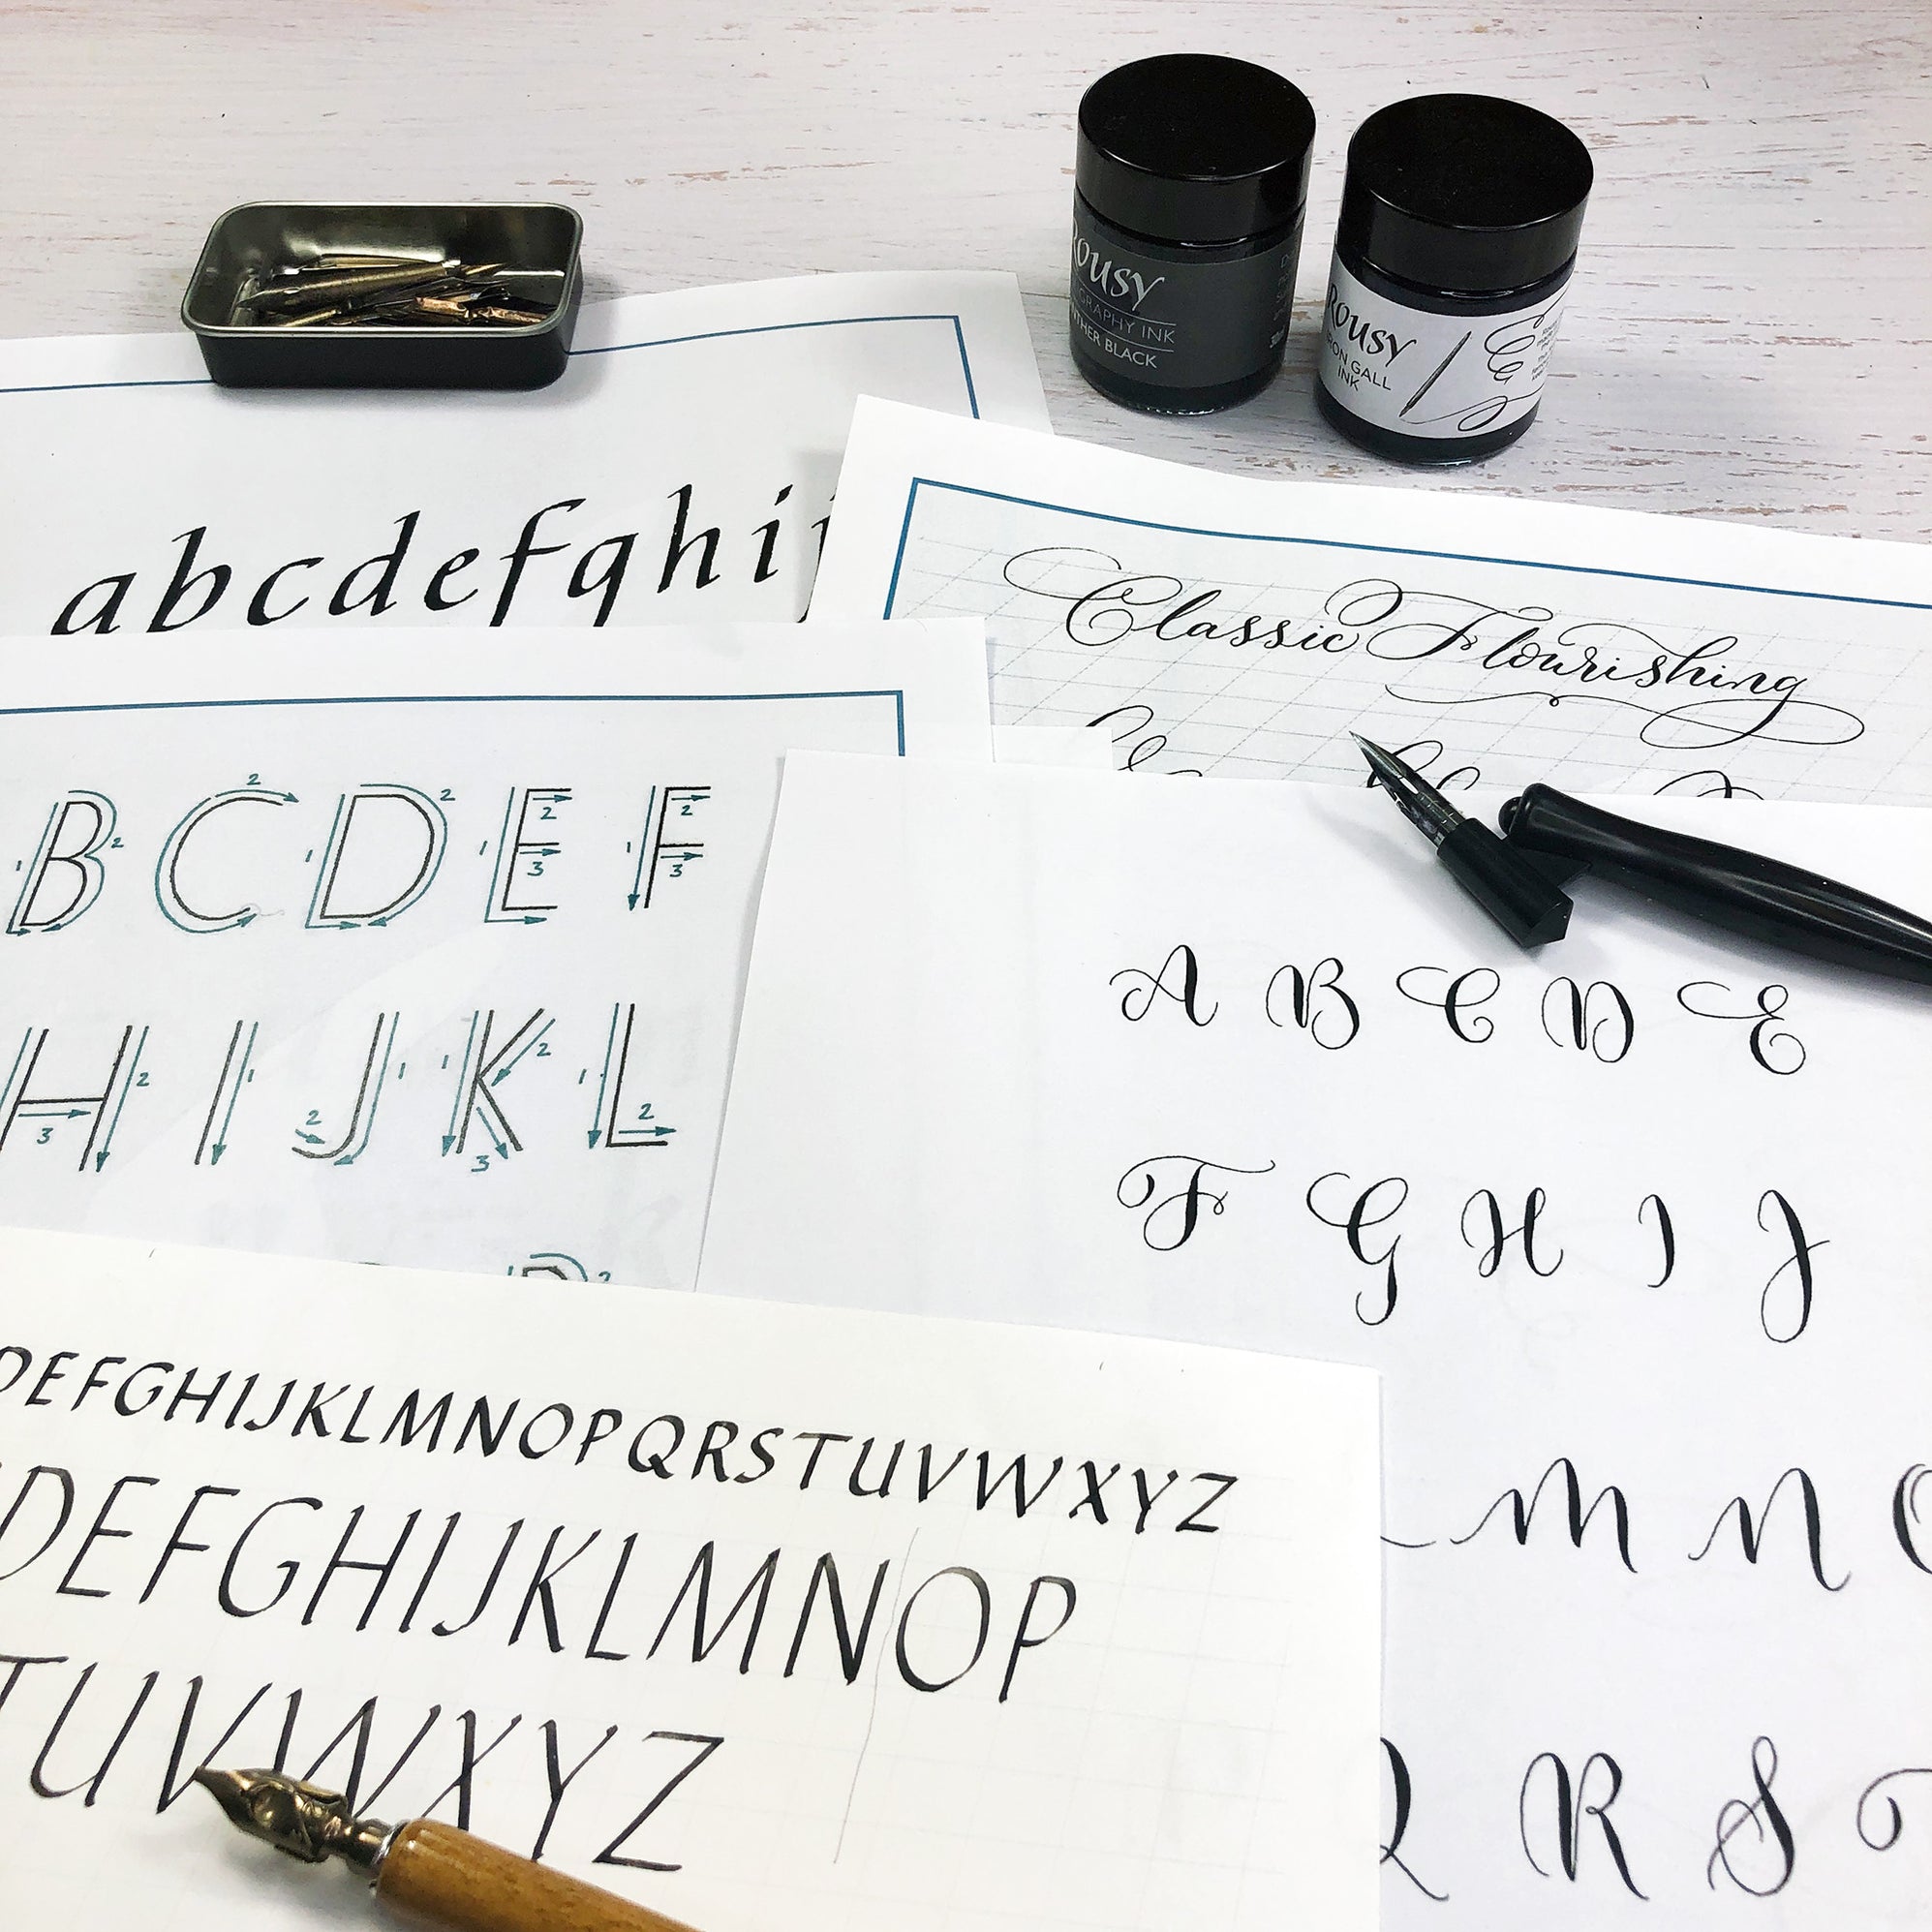 ROUSY
GRAPHY INK
THER BLACK
ROUSY
IRON GALL
INK
abcdefghij
Classic Flourishing
B C D E F
H I J K L
A B C D E
F G H I J
M N O
Q R S T
DEFGHIJKLMNOPQRSTUVWXYZ
DEFGHIJKLMNOP
TUVWXYZ